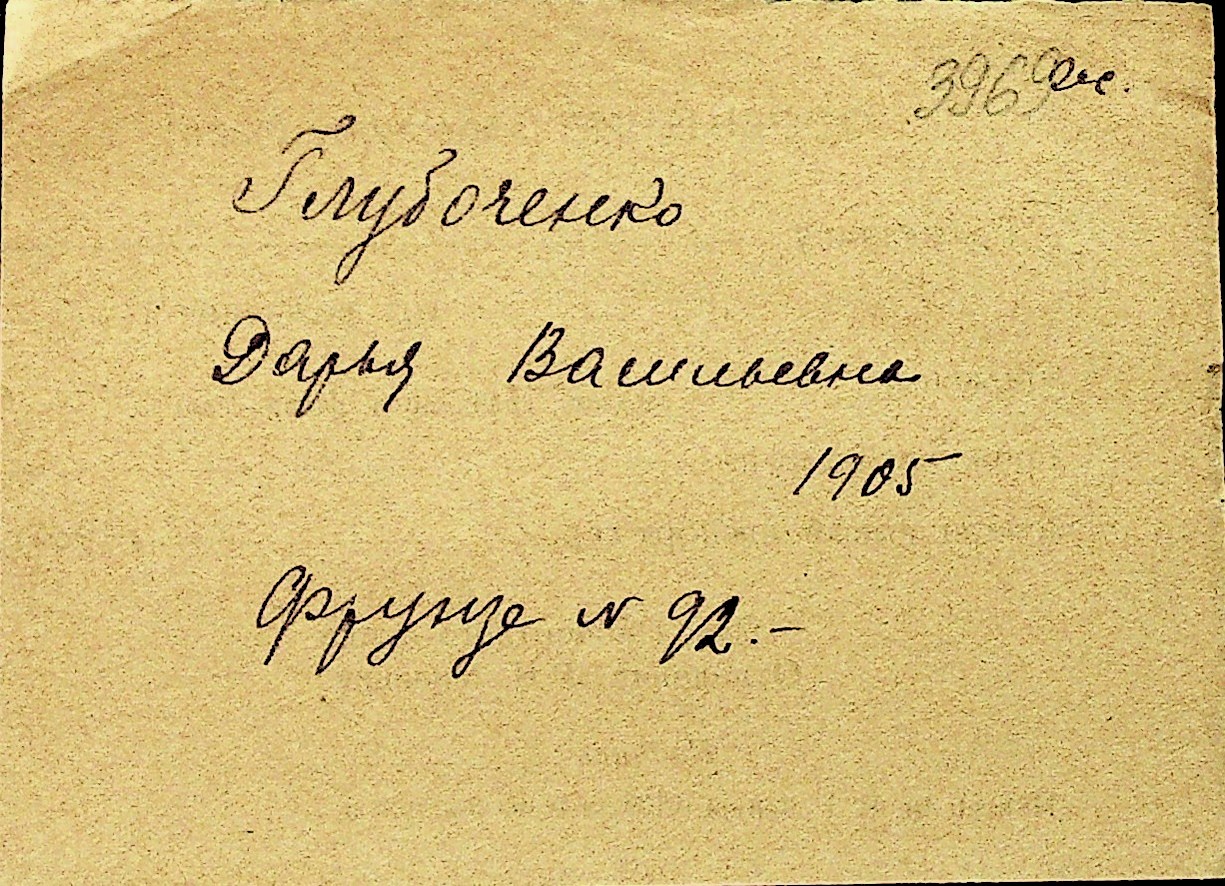 3969
Глубоченко
Дарья Васильевна
1905
Фрунзе N 92.-